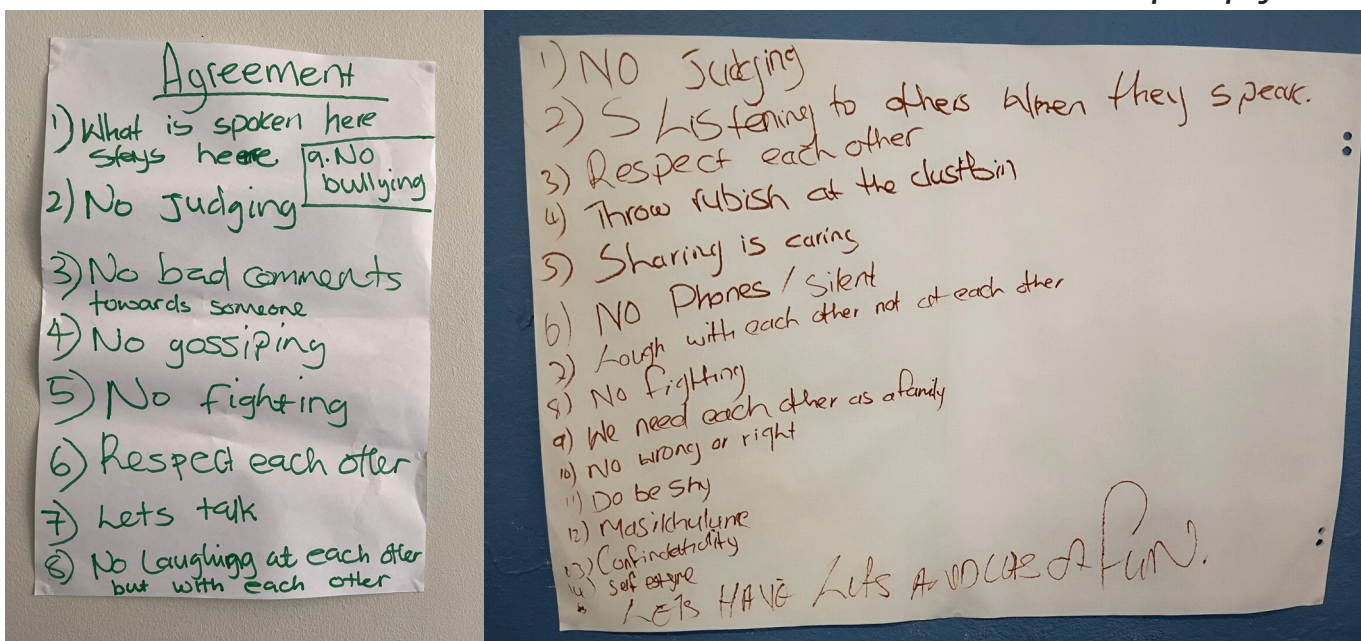 Agreement
1) What is spoken here
stays heere
a. No
bullying
2) No Judging
3) No bad comments
towards someone
4) No gossiping
5) No fighting
6) Respect each other
7) Lets talk
8) No Laughing at each other
but with each other
1) NO Judging
2) S Listening to others when they speak.
3) Respect each other
4) Throw rubish at the dustbin
5) Sharing is caring
6) NO Phones / Silent
7) Lough with each other not at each other
8) No Fighting
9) We need each other as a family
10) No wrong or right
11) Do be shy
12) Masikhulume
13) Confindetiality
14) Self estyme
LETS HAVE Lots of FUN.